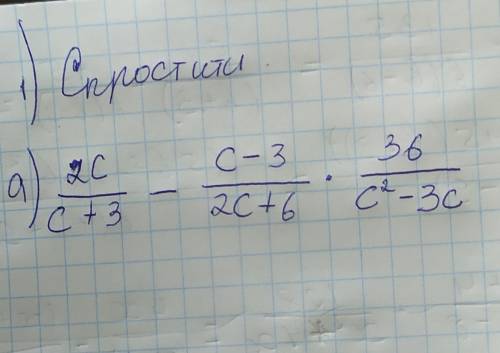 1) Спростити
а) 2c/(c+3) − (c−3)/(2c+6) · 36/(c²−3c)